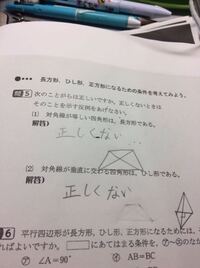 ●●●● 長方形、ひし形、正方形になるための条件を考えてみよう。
問5 次のことがらは正しいですか。正しくないときは
そのことを示す反例をあげなさい。
(1) 対角線が等しい四角形は、長方形である。
解答)
正しくない
(2) 対角線が垂直に交わる四角形は、ひし形である。
解答)
正しくない
問6 平行四辺形が長方形、ひし形、正方形になるためには、
ればよいですか。□にあてはまる条件を、㋐〜
㋐ ∠A=90° ㋑ AB=BC